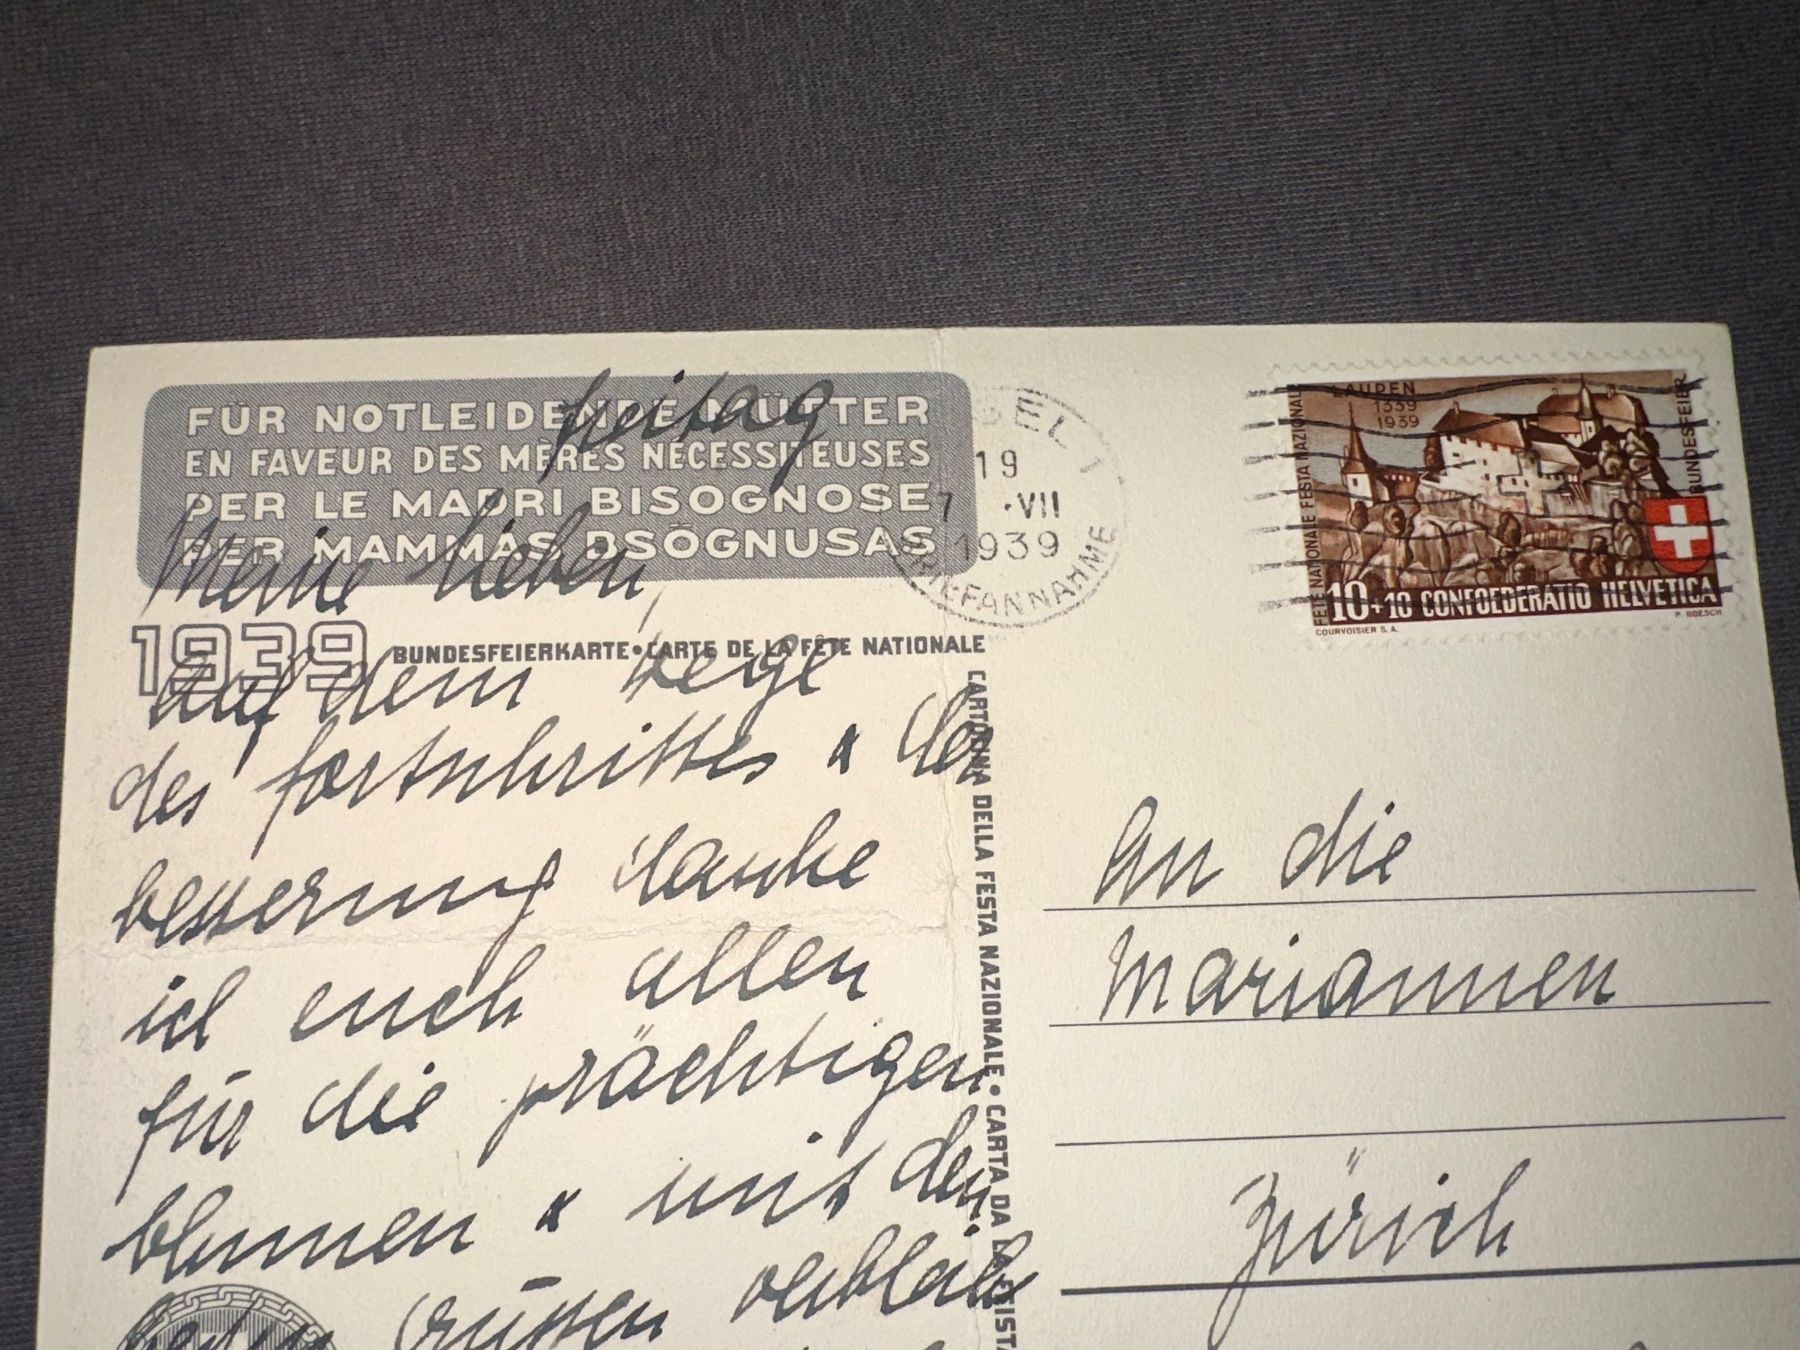 FÜR NOTLEIDENDE MÜTTER
EN FAVEUR DES MÈRES NÉCESSITEUSES
PER LE MADRI BISOGNOSE
PER MAMMAS BSÖGNUSAS
1939 BUNDESFEIERKARTE • CARTE DE LA FÊTE NATIONALE
CARTOLINA DELLA FESTA NAZIONALE • CARTA DA LA FEISTA
freitag
Meine lieben,
auf dem wege
des fortschrittes & der
besserung danke
ich euch allen
für die prächtigen
blumen & mit den
grüssen
BASEL 1
19
7 .VII
1939
BRIEFANNAHME
LAUPEN
1339
1939
FÊTE NATIONALE FESTA NAZIONALE
BUNDESFEIER
10+10 CONFOEDERATIO HELVETICA
COURVOISIER S.A.
P. BOESCH
An die
Mariannen
Zürich